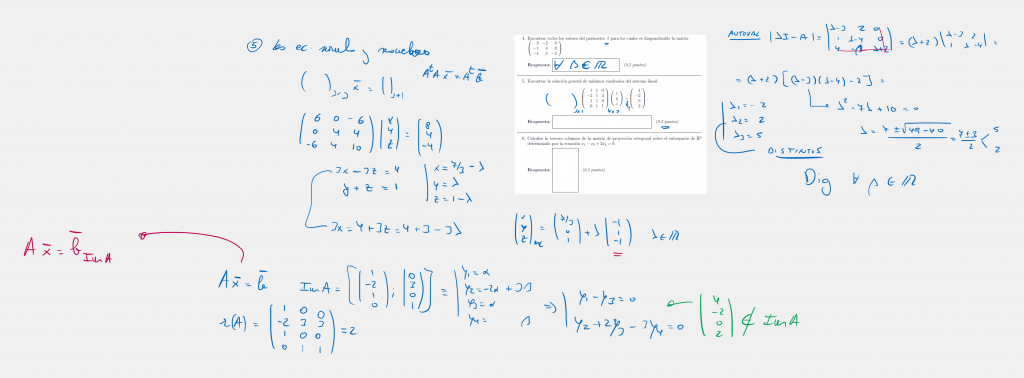 ⑤ las ec. normales y resolvemos
( )₃ₓ₃ x̄ = ( )₃ₓ₁
AᵗA x̄ = Aᵗ b̄
( 6 0 -6
0 4 4
-6 4 10 ) ( x
y
z ) = ( 8
4
-4 )
3x - 3z = 4
y + z = 1
x = 7/3 - λ
y = λ
z = 1 - λ
3x = 4 + 3z = 4 + 3 - 3λ
4. Encontrar todos los valores del parámetro β para los cuales es diagonalizable la matriz
Respuesta: ∀ β ∈ ℝ (0,5 puntos)
5. Encontrar la solución general de mínimos cuadrados del sistema lineal
Respuesta: (0,5 puntos)
6. Calcular la tercera columna de la matriz de proyección ortogonal sobre el subespacio de ℝ³
determinado por la ecuación x₁ - x₂ + 2x₃ = 0.
Respuesta: (0,5 puntos)
( x
y
z ) = ( 7/3
0
1 ) + λ ( -1
1
-1 ) λ ∈ ℝ
AUTOVAL |λI - A| =
= (λ+2)
= (λ+2) [(λ-3)(λ-4) - 2] =
λ² - 7λ + 10 = 0
λ₁ = -2
λ₂ = 2
λ₃ = 5
λ = 7 ± √49 - 40 / 2 = 7 ± 3 / 2 < 5
2
DISTINTOS
Dig ∀ β ∈ ℝ
A x̄ = b̄ Im A
A x̄ = b̄
Im A = [ ( 1
-2
1
0 ) ; ( 0
3
0
1 ) ] =
y₁ = α
y₂ = -2α + 3β
y₃ = α
y₄ = β
⇒ y₁ - y₃ = 0
y₂ + 2y₃ - 3y₄ = 0
( 4
-2
0
2 ) ∉ Im A
r(A) = ( 1 0 0
-2 3 3
1 0 0
0 1 1 ) = 2